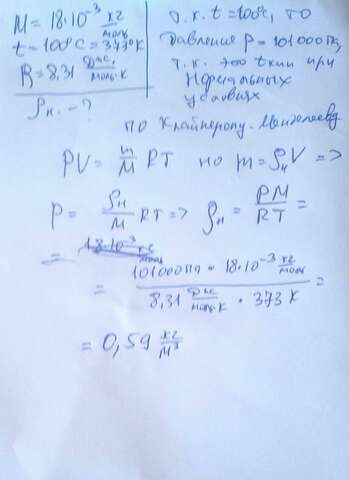 M = 18·10⁻³ кг/моль
t = 100°C = 373°K
R = 8,31 Дж/моль·К
ρн. - ?
т.к. t = 100°C, то
давление P = 101000 Па,
т.к. это t кип при
Нормальных
условиях
по Клайперону-Менделееву
PV = m/M RT но m = ρнV =>
P = ρн/M RT => ρн = PM/RT =
= 18·10⁻³ кг/моль
= 101000 Па · 18·10⁻³ кг/моль / 8,31 Дж/моль·К · 373 К =
= 0,59 кг/м³